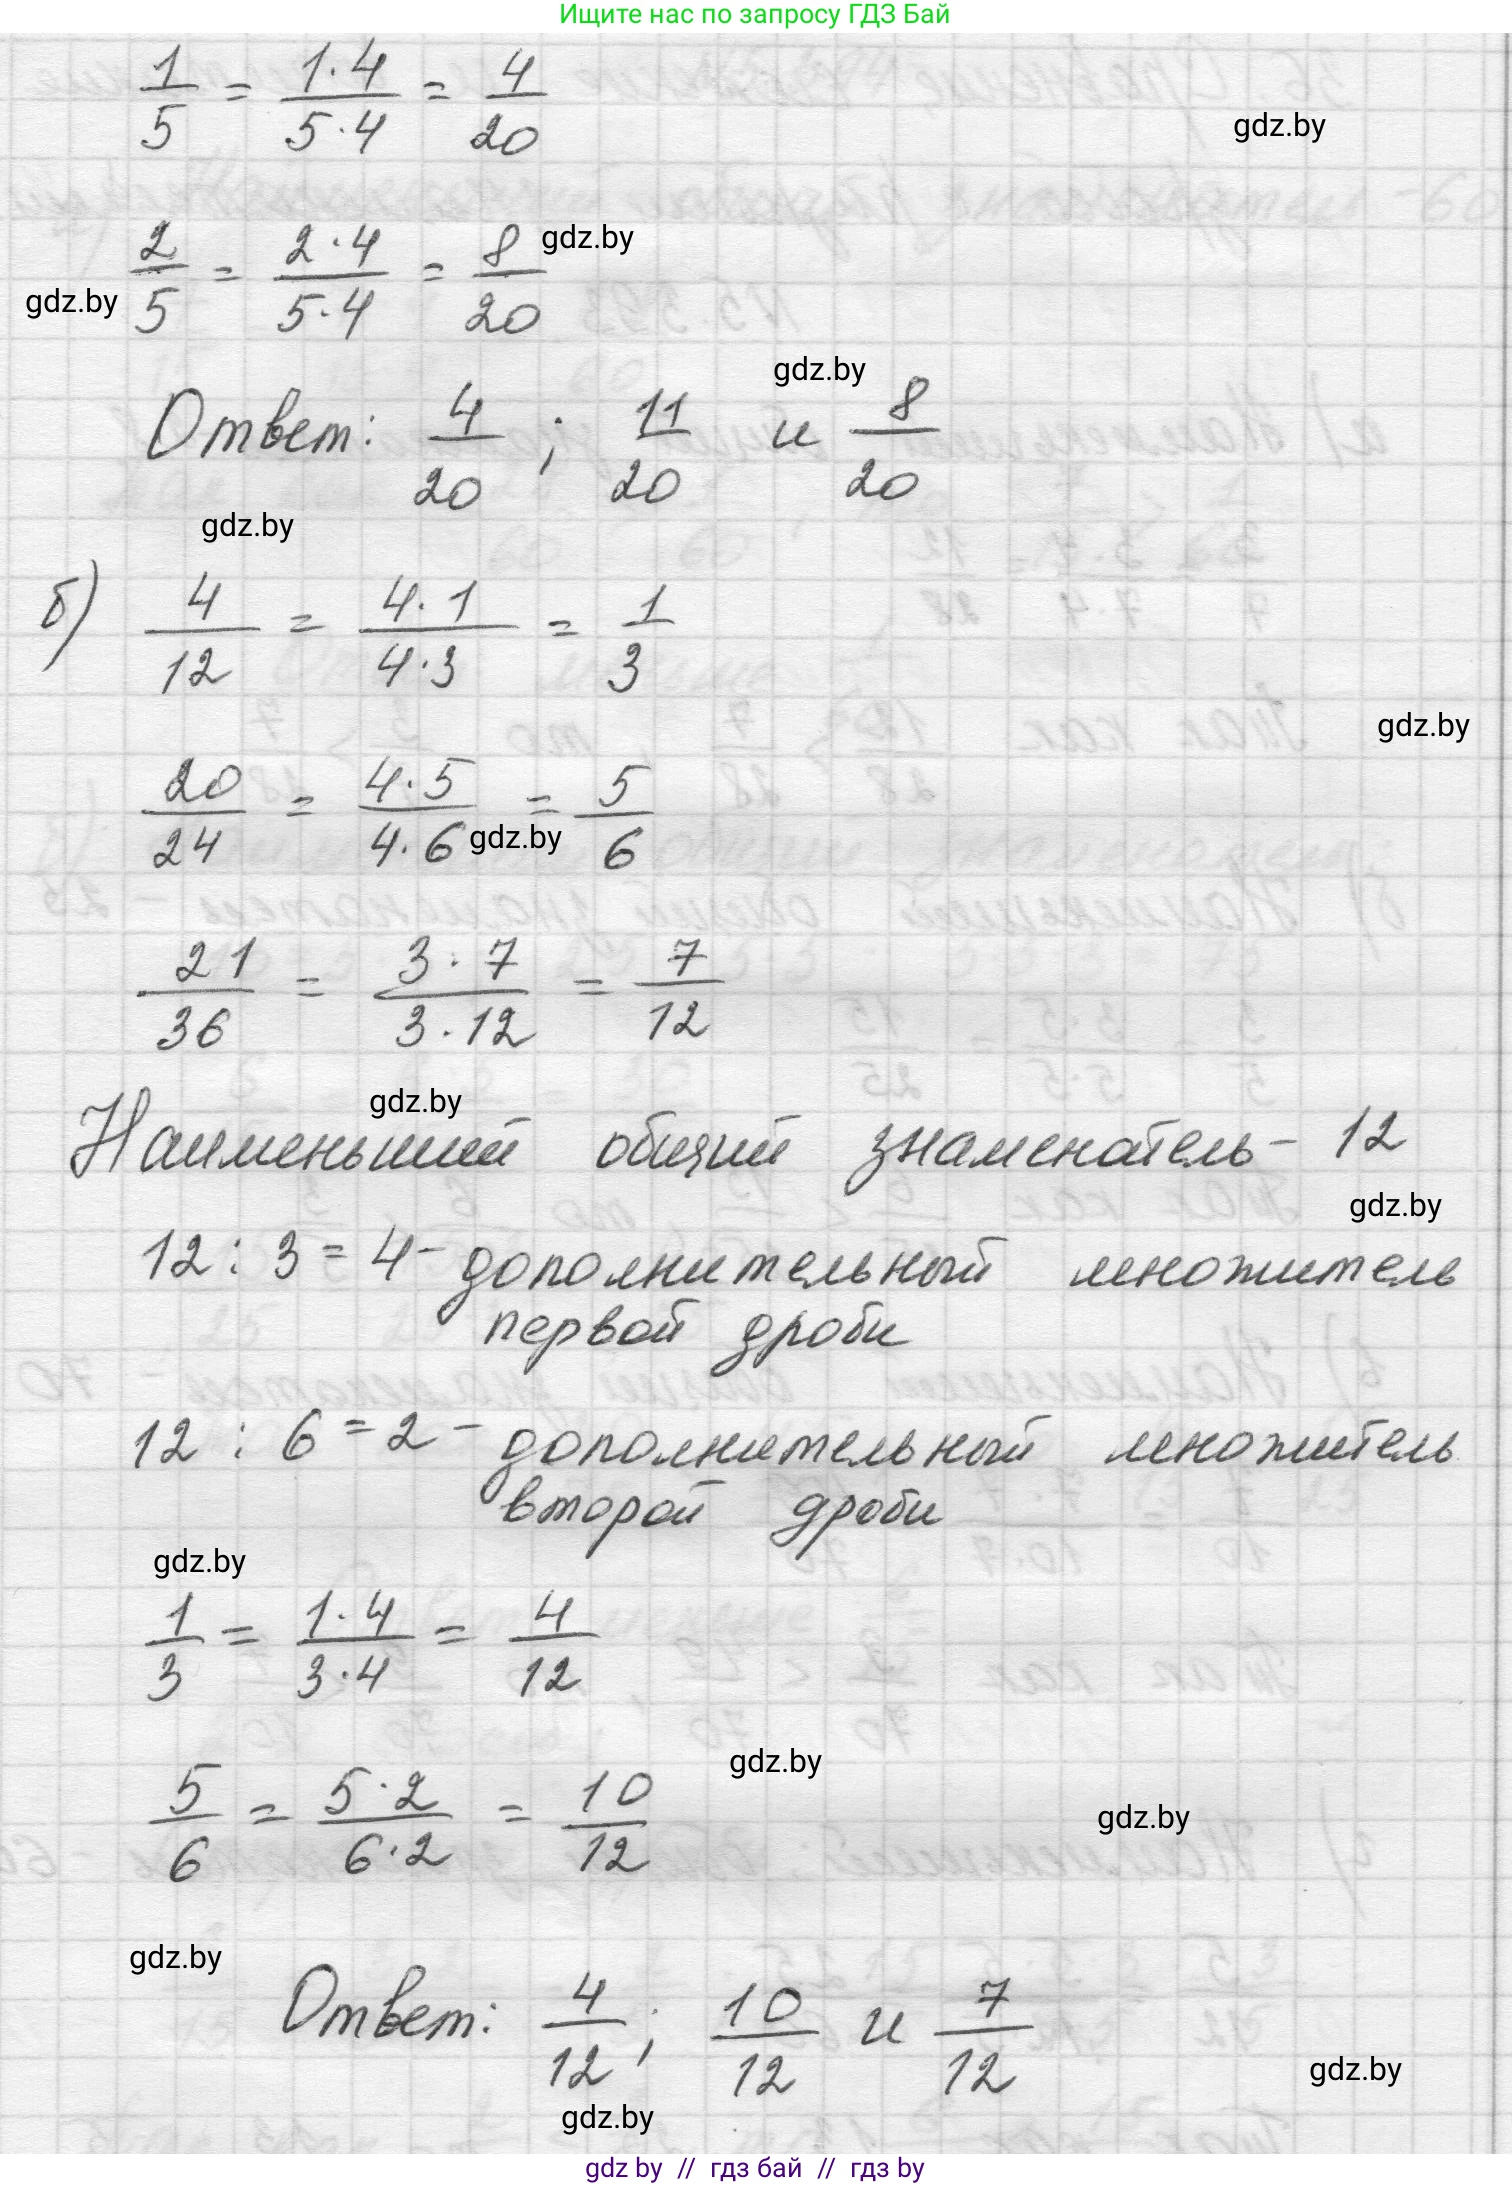 Ищите нас по запросу ГДЗ Бай
1/5 = 1·4/5·4 = 4/20
gdz.by
2/5 = 2·4/5·4 = 8/20
gdz.by
gdz.by
gdz.by
Ответ: 4/20 ; 11/20 и 8/20
gdz.by
б) 4/12 = 4·1/4·3 = 1/3
gdz.by
20/24 = 4·5/4·6 = 5/6
gdz.by
21/36 = 3·7/3·12 = 7/12
gdz.by
Наименьший общий знаменатель - 12
gdz.by
12 : 3 = 4 - дополнительный множитель
первой дроби
12 : 6 = 2 - дополнительный множитель
второй дроби
gdz.by
1/3 = 1·4/3·4 = 4/12
gdz.by
5/6 = 5·2/6·2 = 10/12
gdz.by
gdz.by
Ответ: 4/12 ; 10/12 и 7/12
gdz.by
gdz.by
gdz by // гдз бай // гдз by